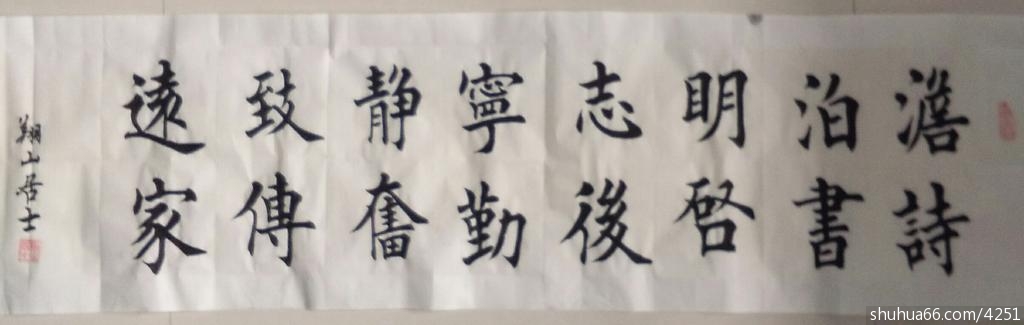 澹泊明志寧静致遠
詩書啓後勤奮傳家
翔山居士
shuhua66.com/4251